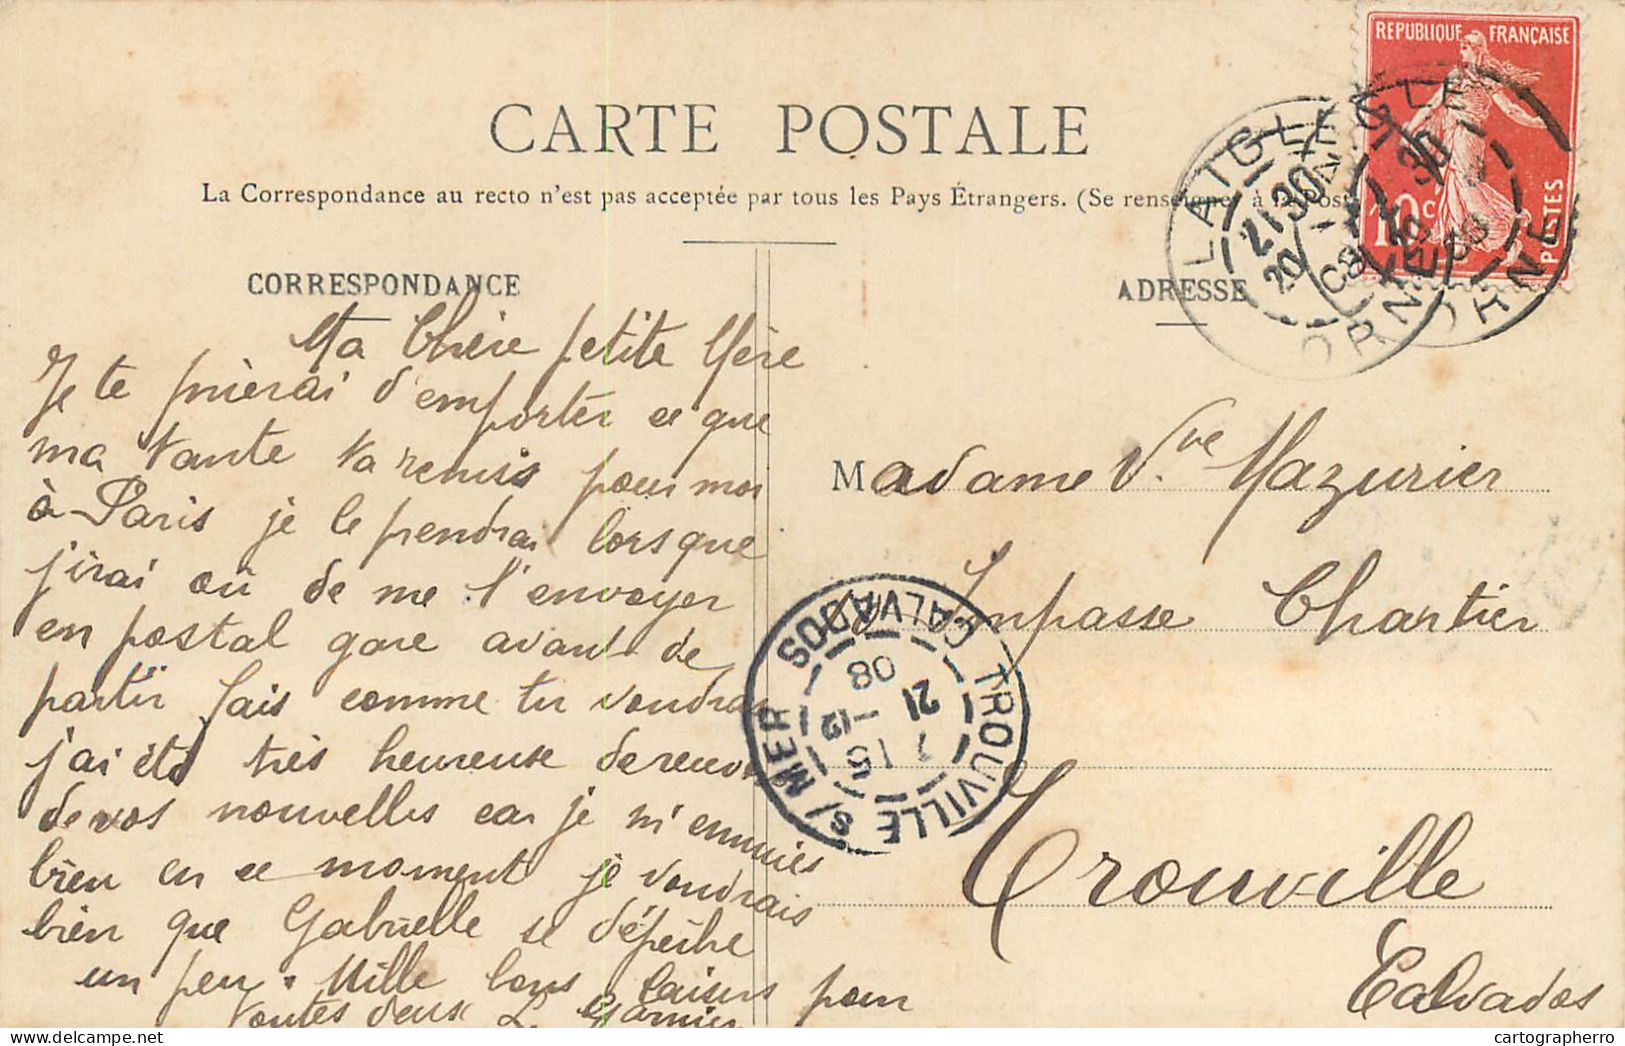 CARTE POSTALE
La Correspondance au recto n'est pas acceptée par tous les Pays Étrangers. (Se renseigner à la
CORRESPONDANCE
ADRESSE
REPUBLIQUE FRANÇAISE
10c
POSTES
LAIGLE
21 30
20
08
ORNE
LAIGLE
ORNE
Ma Chère petite Mère
Je te prierai d'emporter ce que
ma tante t'a remis pour moi
à Paris je le prendrai lorsque
j'irai ou de me l'envoyer
en postal gare avant de
partir fais comme tu voudras
j'ai été très heureuse de recevoir
de vos nouvelles car je m'ennuies
bien en ce moment je voudrais
bien que Gabrielle se dépêche
un peu. Mille bons baisers pour
toutes deux L. Garnier
Madame Vve Mazurier
Impasse Chartier
Trouville
Calvados
TROUVILLE S/MER
CALVADOS
15
21 -12
08
cartographerro